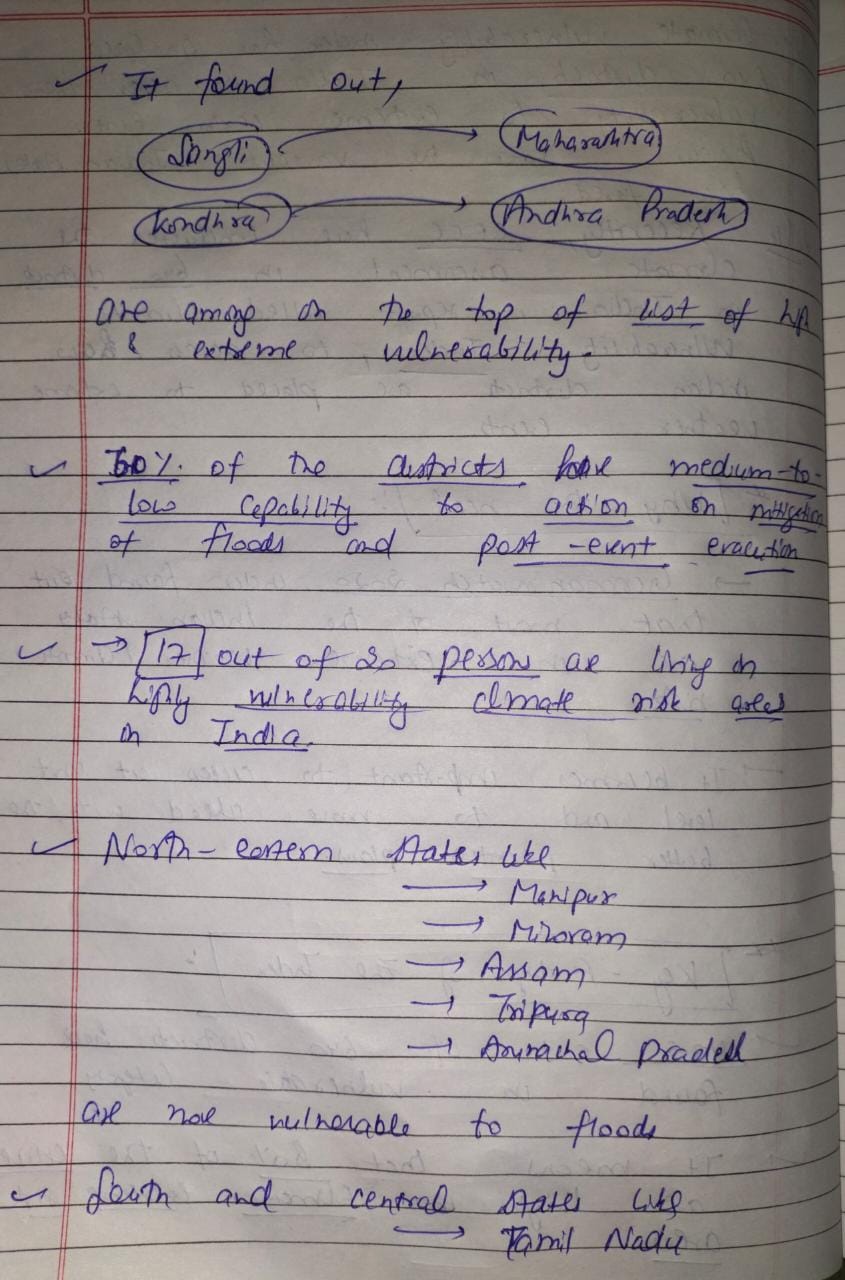 It found out,
Sangli → Maharashtra
Kondhra → Andhra Pradesh
are among on the top of list of
& extreme vulnerability.
60% of the districts have medium-to-
low capability to action on mitigation
of floods and post-event evacution
→ 17 out of 20 person are living in
highly vulnerability climate risk areas
in India.
North-eastern states like
→ Manipur
→ Mizoram
→ Assam
→ Tripura
→ Arunachal Pradesh
are more vulnerable to floods
South and central states like
→ Tamil Nadu